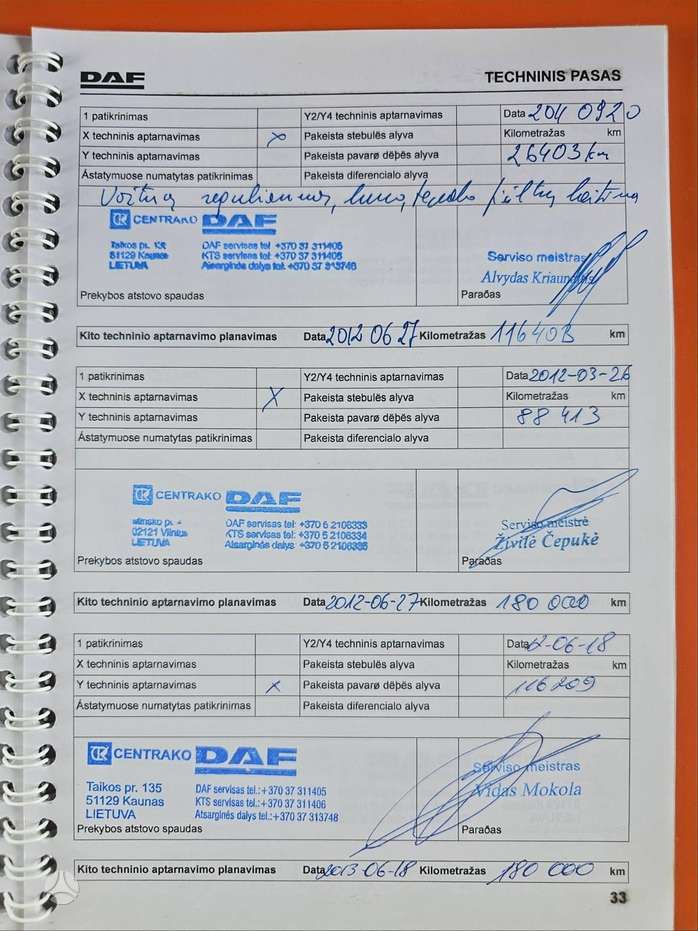 DAF TECHNINIS PASAS
1 patikrinimas Y2/Y4 techninis aptarnavimas Data 204 0920
X techninis aptarnavimas X Pakeista stebulės alyva Kilometražas km
Y techninis aptarnavimas Pakeista pavarø dëþës alyva 26403 km
Ástatymuose numatytas patikrinimas Pakeista diferencialo alyva
CENTRAKO DAF
Taikos pr. DAF servisas tel +370 37 311405
51129 Kaunas KTS servisas tel: +370 37 311406
LIETUVA Atsarginės dalys tel: +370 37 313748
Serviso meistras
Alvydas
Prekybos atstovo spaudas Paraðas
Kito techninio aptarnavimo planavimas Data 2012 06 27 Kilometražas 116403 km
1 patikrinimas Y2/Y4 techninis aptarnavimas Data 2012-03-26
X techninis aptarnavimas X Pakeista stebulės alyva Kilometražas km
Y techninis aptarnavimas Pakeista pavarø dëþës alyva 88 413
Ástatymuose numatytas patikrinimas Pakeista diferencialo alyva
CENTRAKO DAF
02121 Vilnius DAF servisas tel: +370 5 2106333
LIETUVA KTS servisas tel: +370 5 2106334
Atsarginės dalys: +370 5 2106335
Serviso meistrė
Živilė Čepukė
Prekybos atstovo spaudas Paraðas
Kito techninio aptarnavimo planavimas Data 2012-06-27 Kilometražas 180 000 km
1 patikrinimas Y2/Y4 techninis aptarnavimas Data 12-06-18
X techninis aptarnavimas Pakeista stebulės alyva Kilometražas km
Y techninis aptarnavimas X Pakeista pavarø dëþës alyva 116209
Ástatymuose numatytas patikrinimas Pakeista diferencialo alyva
CENTRAKO DAF
Taikos pr. 135 DAF servisas tel.:+370 37 311405
51129 Kaunas KTS servisas tel.:+370 37 311406
LIETUVA Atsarginės dalys tel.:+370 37 313748
Serviso meistras
Vidas Mokola
Prekybos atstovo spaudas Paraðas
Kito techninio aptarnavimo planavimas Data 2013-06-18 Kilometražas 180 000 km
33